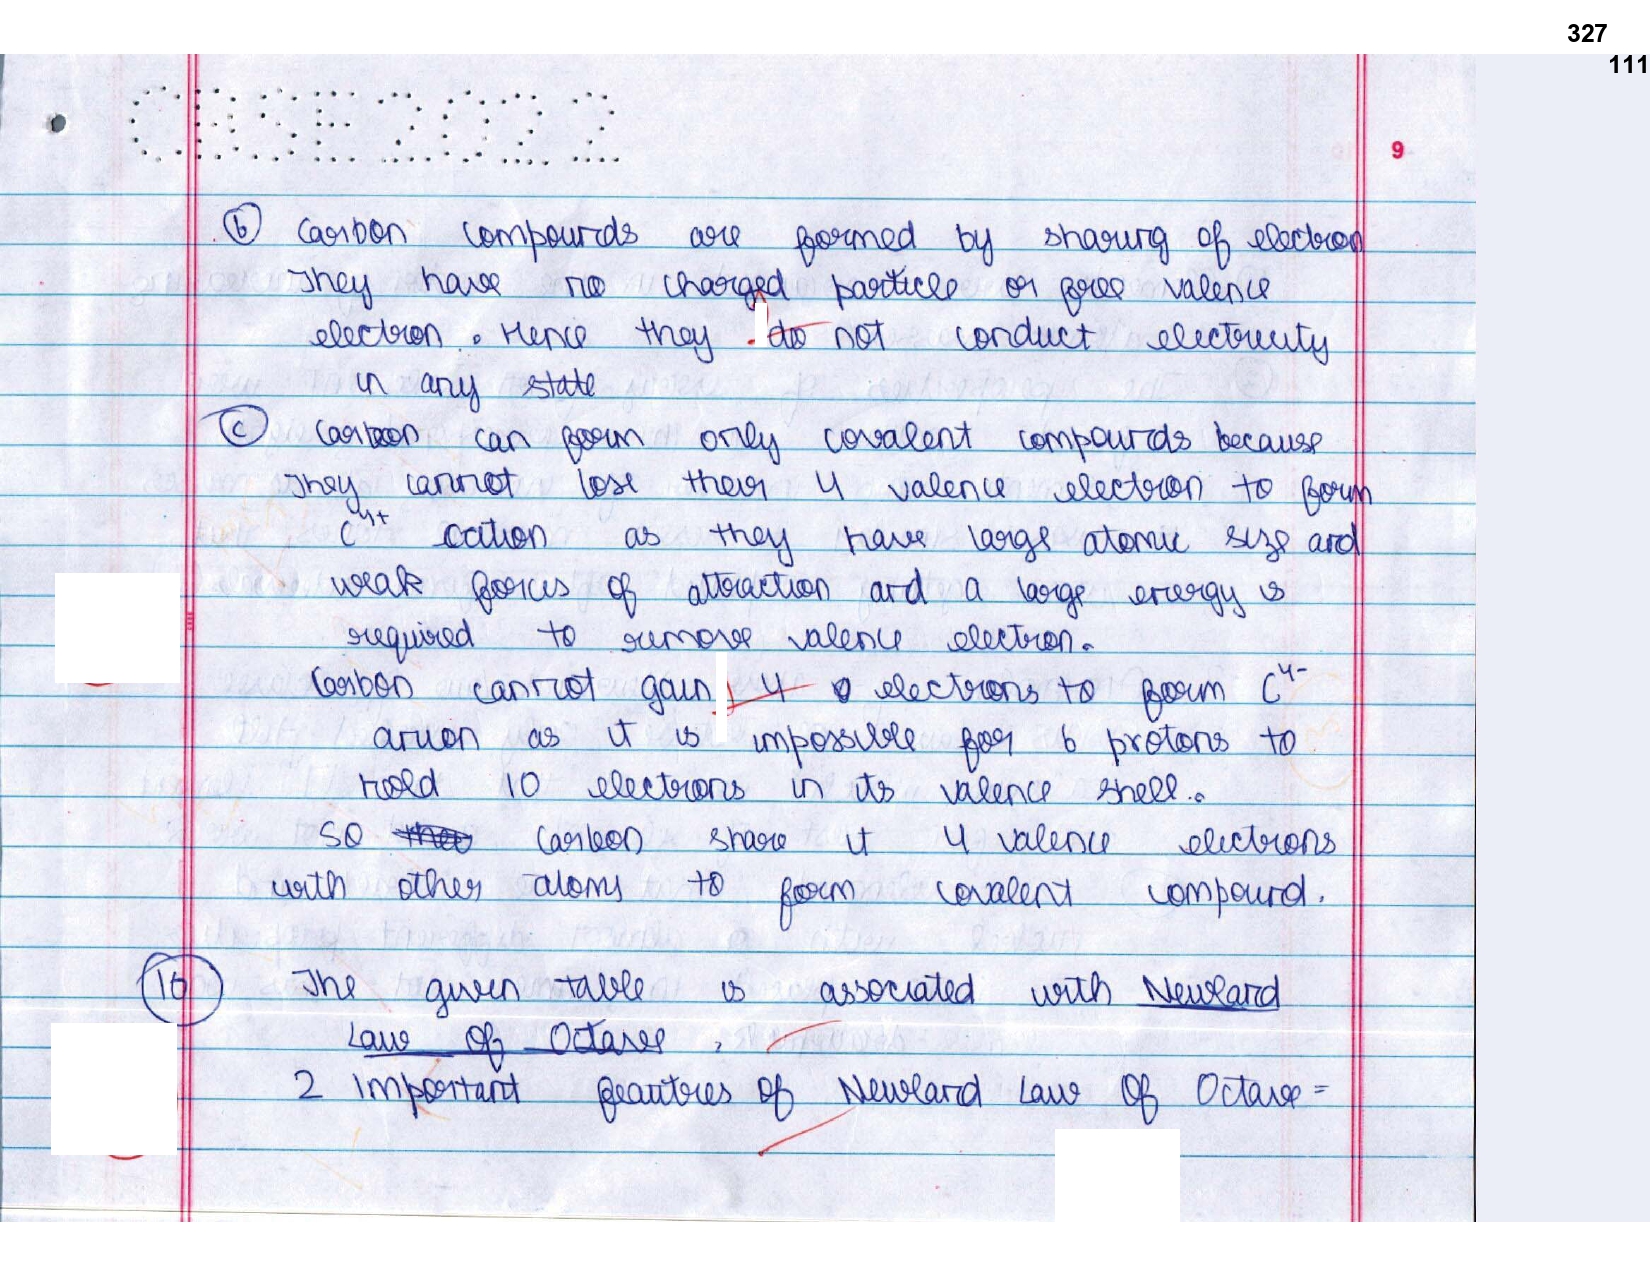 327
111
CBSE 2022
9
(b) Carbon compounds are formed by sharing of electron
They have no charged particle or free valence
electron. Hence they do not conduct electricity
in any state
(c) Carbon can form only covalent compounds because
They cannot lose their 4 valence electron to form
C⁴⁺ cation as they have large atomic size and
weak forces of attraction and a large energy is
required to remove valence electron.
Carbon cannot gain 4 electrons to form C⁴⁻
anion as it is impossible for 6 protons to
hold 10 electrons in its valence shell.
SO carbon share it 4 valence electrons
with other atoms to form covalent compound.
10 The given table is associated with Newland
Law Of Octave.
2 Important feautres Of Newland Law Of Octave =